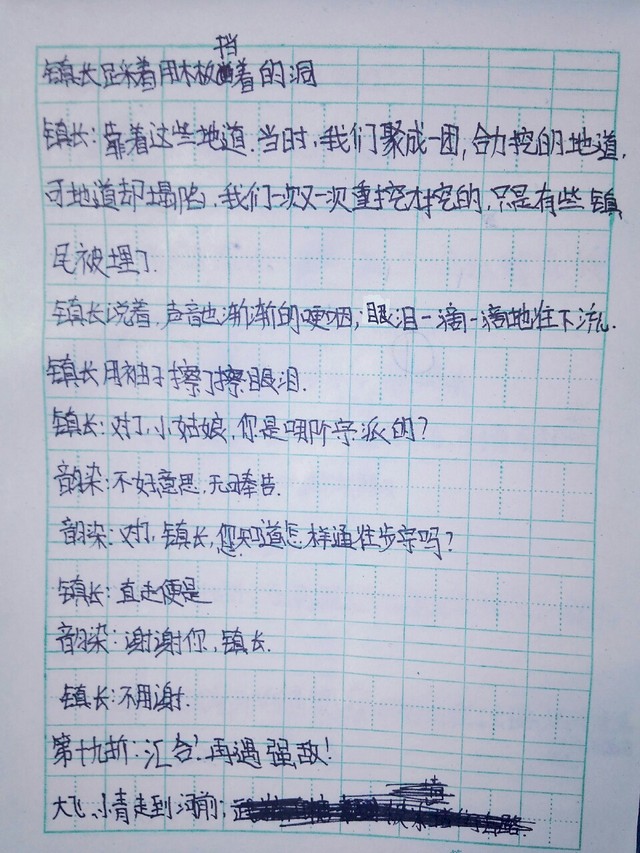 镇长踩着用木板挡着的洞
镇长:靠着这些地道.当时,我们聚成一团,合力挖的地道,
可地道却塌陷,我们一次又一次重挖才挖的,只是有些镇
民被埋了.
镇长说着,声音也渐渐的哽咽,眼泪一滴一滴地往下流.
镇长用袖子擦了擦眼泪.
镇长:对了,小姑娘,你是哪个宗派的?
韵染:不好意思,无可奉告.
韵染:对了,镇长,您知道怎样通往步宗吗?
镇长:直走便是
韵染:谢谢你,镇长.
镇长:不用谢.
第十九折:汇合!再遇强敌!
大飞、小青走到河前;